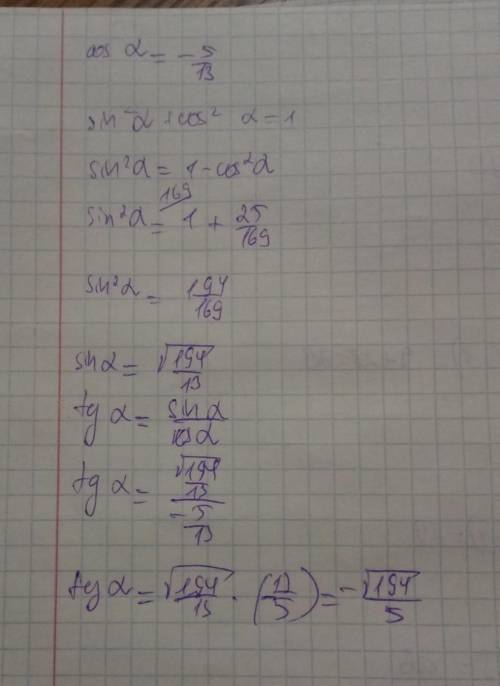 cos α = - 5/13
sin² α + cos² α = 1
sin²α = 1 - cos²α
sin²α = 169/1 + 25/169
sin²α = 194/169
sin α = √194/13
tg α = sin α/cos α
tg α = √194/13 / - 5/13
tg α = √194/13 · (13/5) = - √194/5